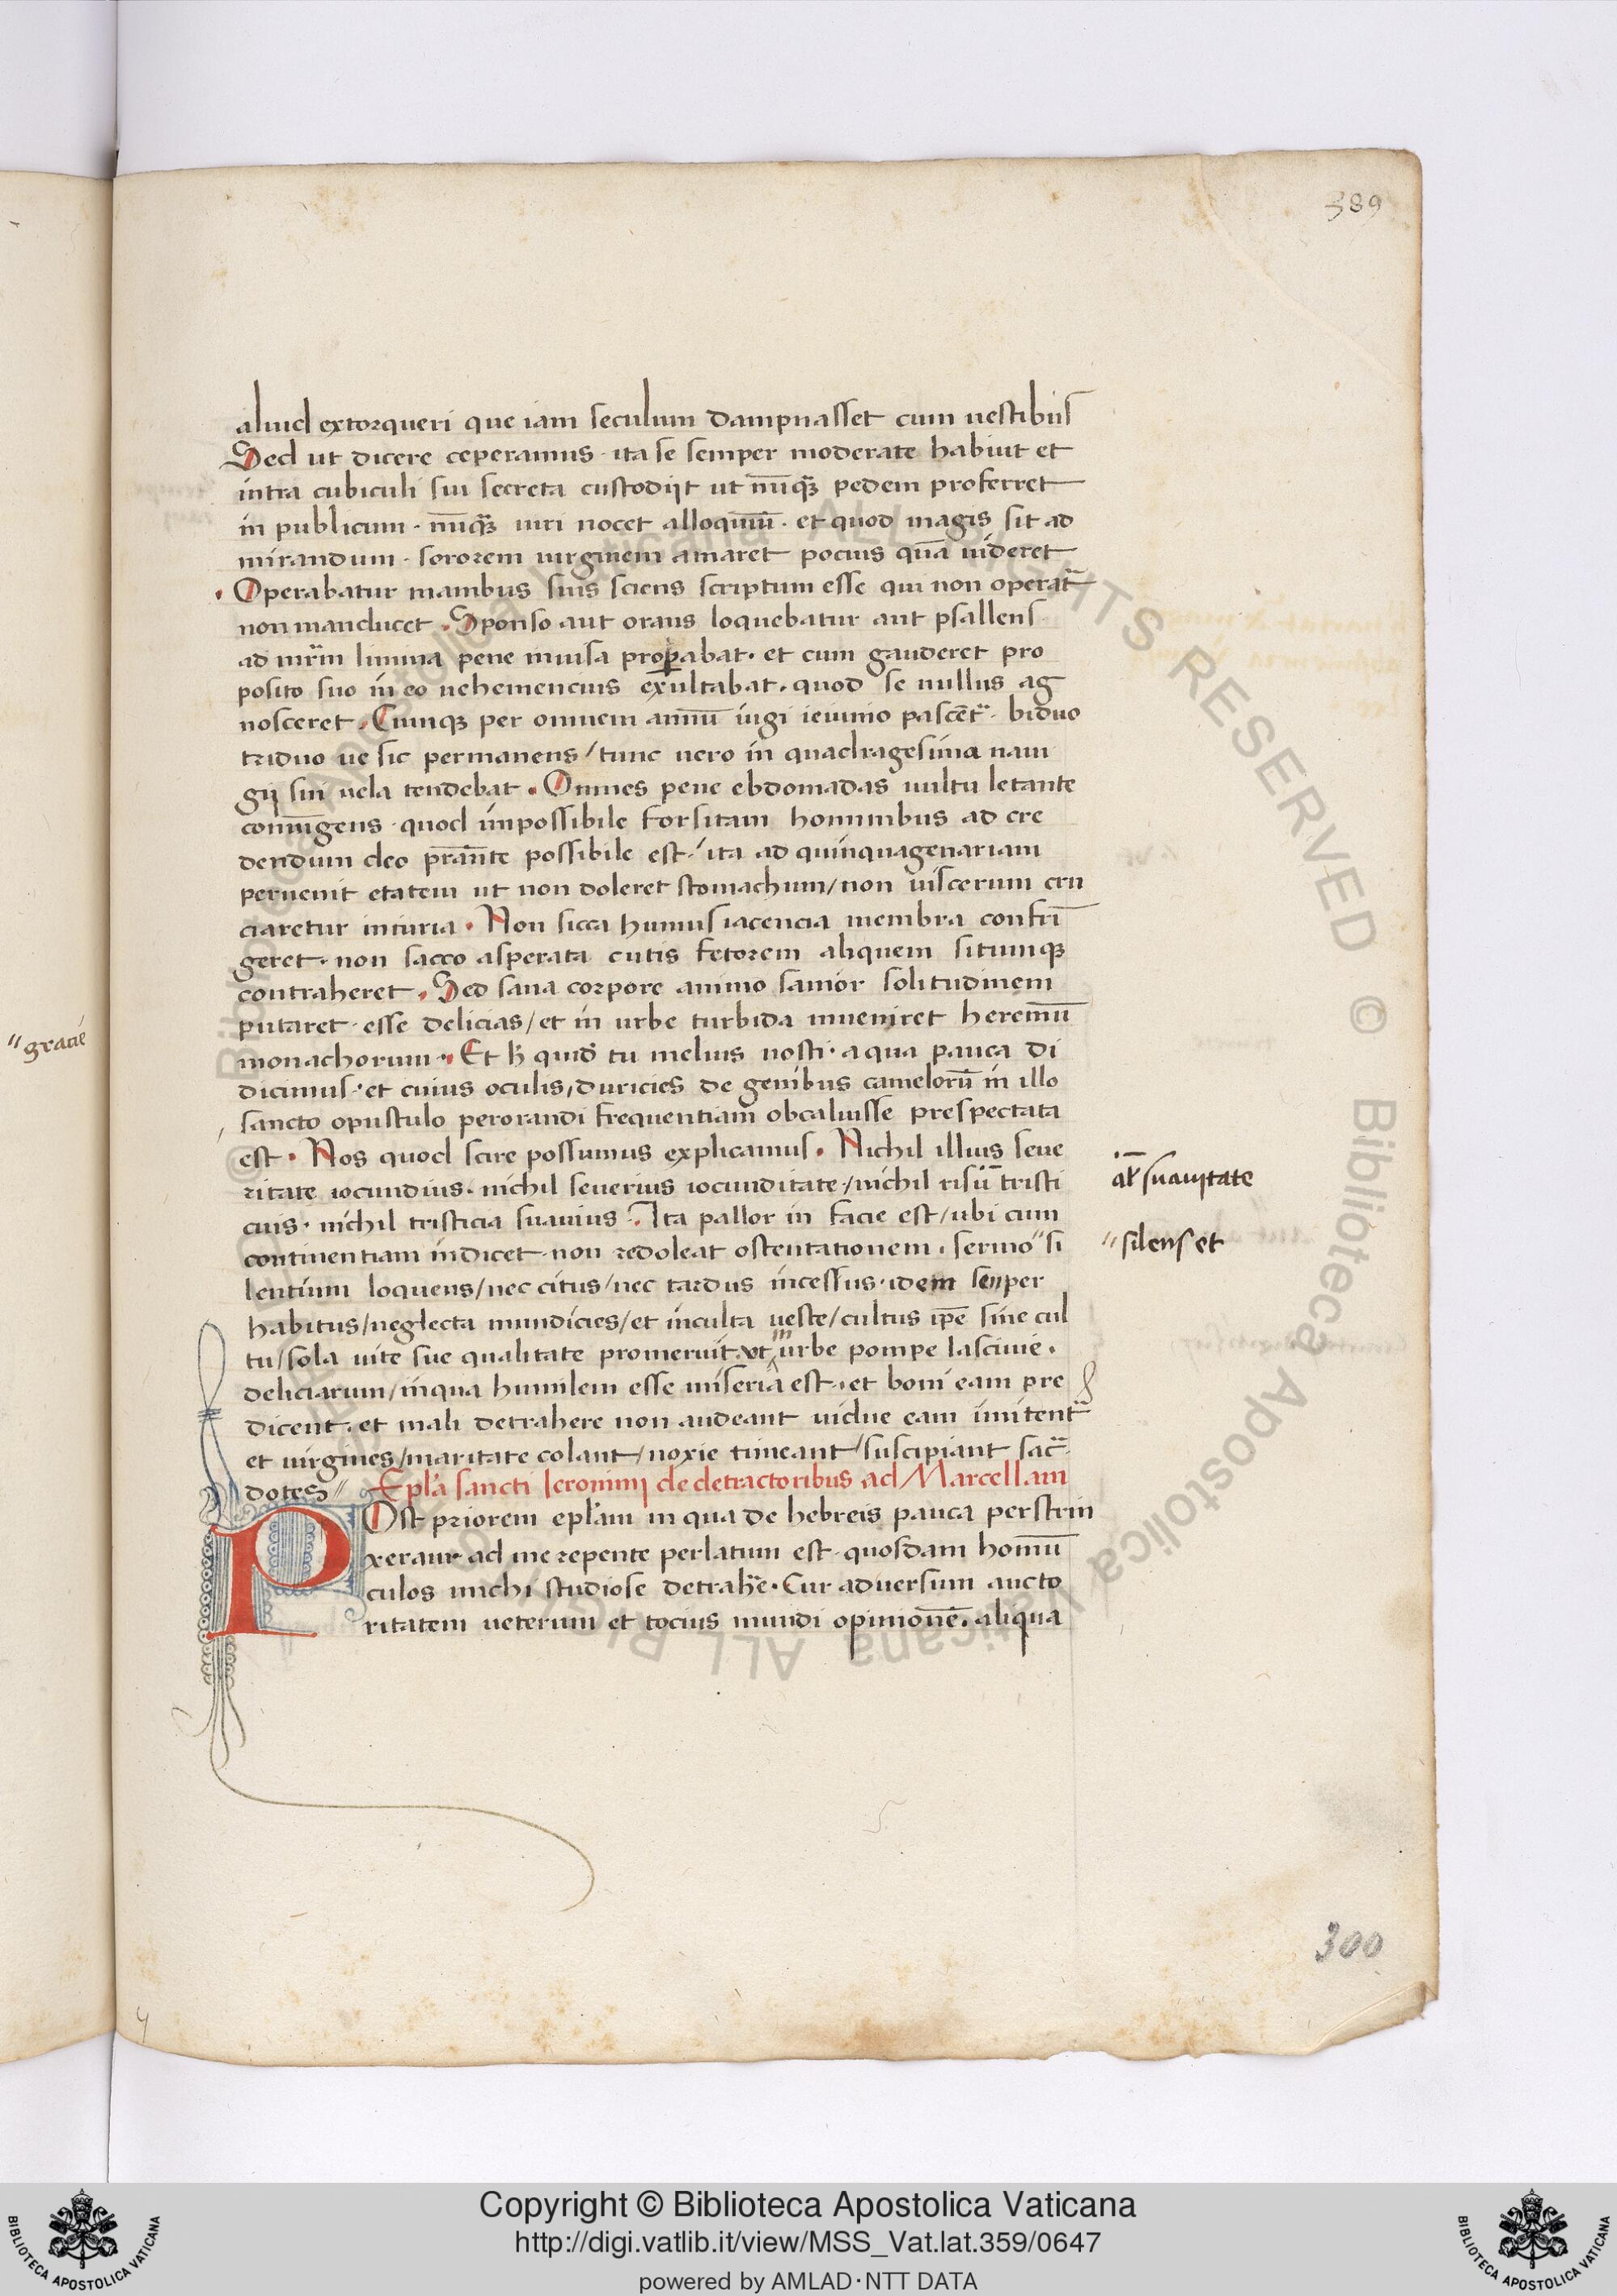 389
aliud extorqueri que iam seculum dampnasset cum uestibus
Sed ut dicere ceperamus · ita se semper moderate habuit et
intra cubiculi sui secreta custodijt ut nūq̄ pedem proferret
in publicum · nūq̄ uiri nocet alloquiū · et quod magis sit ad
mirandum · sororem uirginem amaret pocius quā uideret
Operabatur manibus suis sciens scriptum esse qui non operat̄
non manducet · Sponso aut orans loquebatur aut psallens
ad mr̄m limina pene inuisa prop̱abat · et cum gauderet pro
posito suo in eo uehemencius exultabat · quod se nullus ag
nosceret · Cumqꝫ per omnem annū iugi ieiunio pascēt̄ · biduo
triduo ue sic permanens / tunc uero in quadragesima naui
gij sui uela tendebat · Omnes pene ebdomadas uultu letante
coniūgens · quod impossibile forsitam hominibus ad cre
dendum deo p̄rante possibile est · / ita ad quinquagenariam
peruenit etatem ut non doleret stomachum / non uiscerum cru
ciaretur iniuria · Non sicca humus iacencia membra confri
geret · non sacco asperata cutis fetorem aliquem situmqꝫ
contraheret · Sed sana corpore animo sanior solitudinem
putaret · esse delicias / et in urbe turbida inueniret heremū
"gracie
monachorum · Et h̄ quidē tu melius nosti · a qua pauca di
dicimus · et cuius oculis, duricies de genibus camelorū in illo
sancto opustulo perorandi frequentiam obcaluisse prespectata
est · Nos quod scire possumus explicamus · Nichil illius seue
al̄ suauitate
ritate iocundius · nichil seuerius iocunditate · / nichil risū tristi
cius · nichil tristicia suauius · Ita pallor in facie est / ubi cum
continentiam indicet · non redoleat ostentationem · sermo" si
"silens et
lentium loquens / nec citus / nec tardus incessus · idem semper
habitus / neglecta mundicies / et inculta ueste / cultus ip̄e sine cul
tu / sola uite sue qualitate promeruit ut in urbe pompe lasciuie ·
deliciarum / in qua humilem esse miseria est · et boni eam pre
dicent · et mali detrahere non audeant uidue eam imitent̄
et uirgines / maritate colant / noxie timeant / suscipiant sac̄
dotes // Epl'a sancti Ieronimj de detractoribus ad Marcellam
POst priorem epl'am in qua de hebreis pauca perstrin
xeram · ad me repente perlatum est · quosdam homū
culos michi studiose detrah'e · Cur aduersum aucto
ritatem ueterum et tocius mundi opinionē · aliqua
300
Copyright © Biblioteca Apostolica Vaticana
http://digi.vatlib.it/view/MSS_Vat.lat.359/0647
powered by AMLAD·NTT DATA
BIBLIOTECA APOSTOLICA VATICANA
BIBLIOTECA APOSTOLICA VATICANA
© Biblioteca Apostolica Vaticana ALL RIGHTS RESERVED © Biblioteca Apostolica Vaticana ALL RIGHTS RESERVED